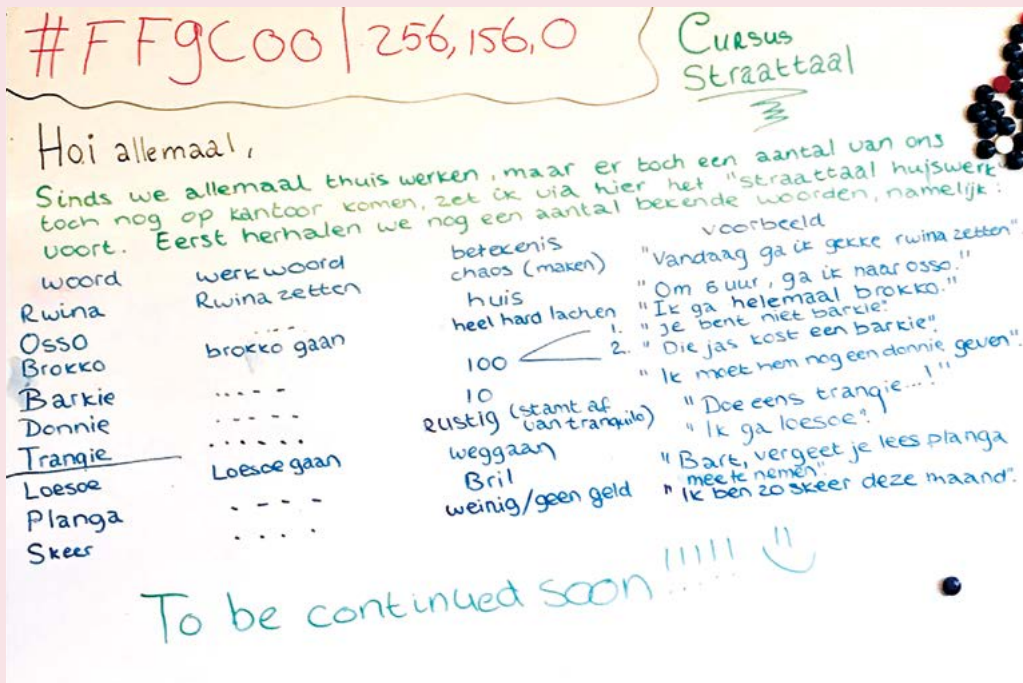 #FF9C00 | 256,156,0
Cursus
Straattaal
Hoi allemaal,
Sinds we allemaal thuis werken, maar er toch een aantal van ons
toch nog op kantoor komen, zet ik via hier het "straattaal huiswerk"
voort. Eerst herhalen we nog een aantal bekende woorden, namelijk:
woord werkwoord betekenis voorbeeld
Rwina Rwina zetten chaos (maken) "Vandaag ga ik gekke rwina zetten".
Osso .... huis "Om 5 uur, ga ik naar osso."
Brokko brokko gaan heel hard lachen "Ik ga helemaal brokko."
Barkie ..... 100 1. "Je bent niet barkie".
2. "Die jas kost een barkie".
Donnie ..... 10 "Ik moet hem nog een donnie geven".
Trangie ...... Rustig (stamt af van tranquilo) "Doe eens trangie...!"
Loesoe Loesoe gaan weggaan "Ik ga loesoe".
Planga .... Bril "Bart, vergeet je lees planga
mee te nemen".
Skeer .... weinig/geen geld "Ik ben zo skeer deze maand".
To be continued soon!!!!!